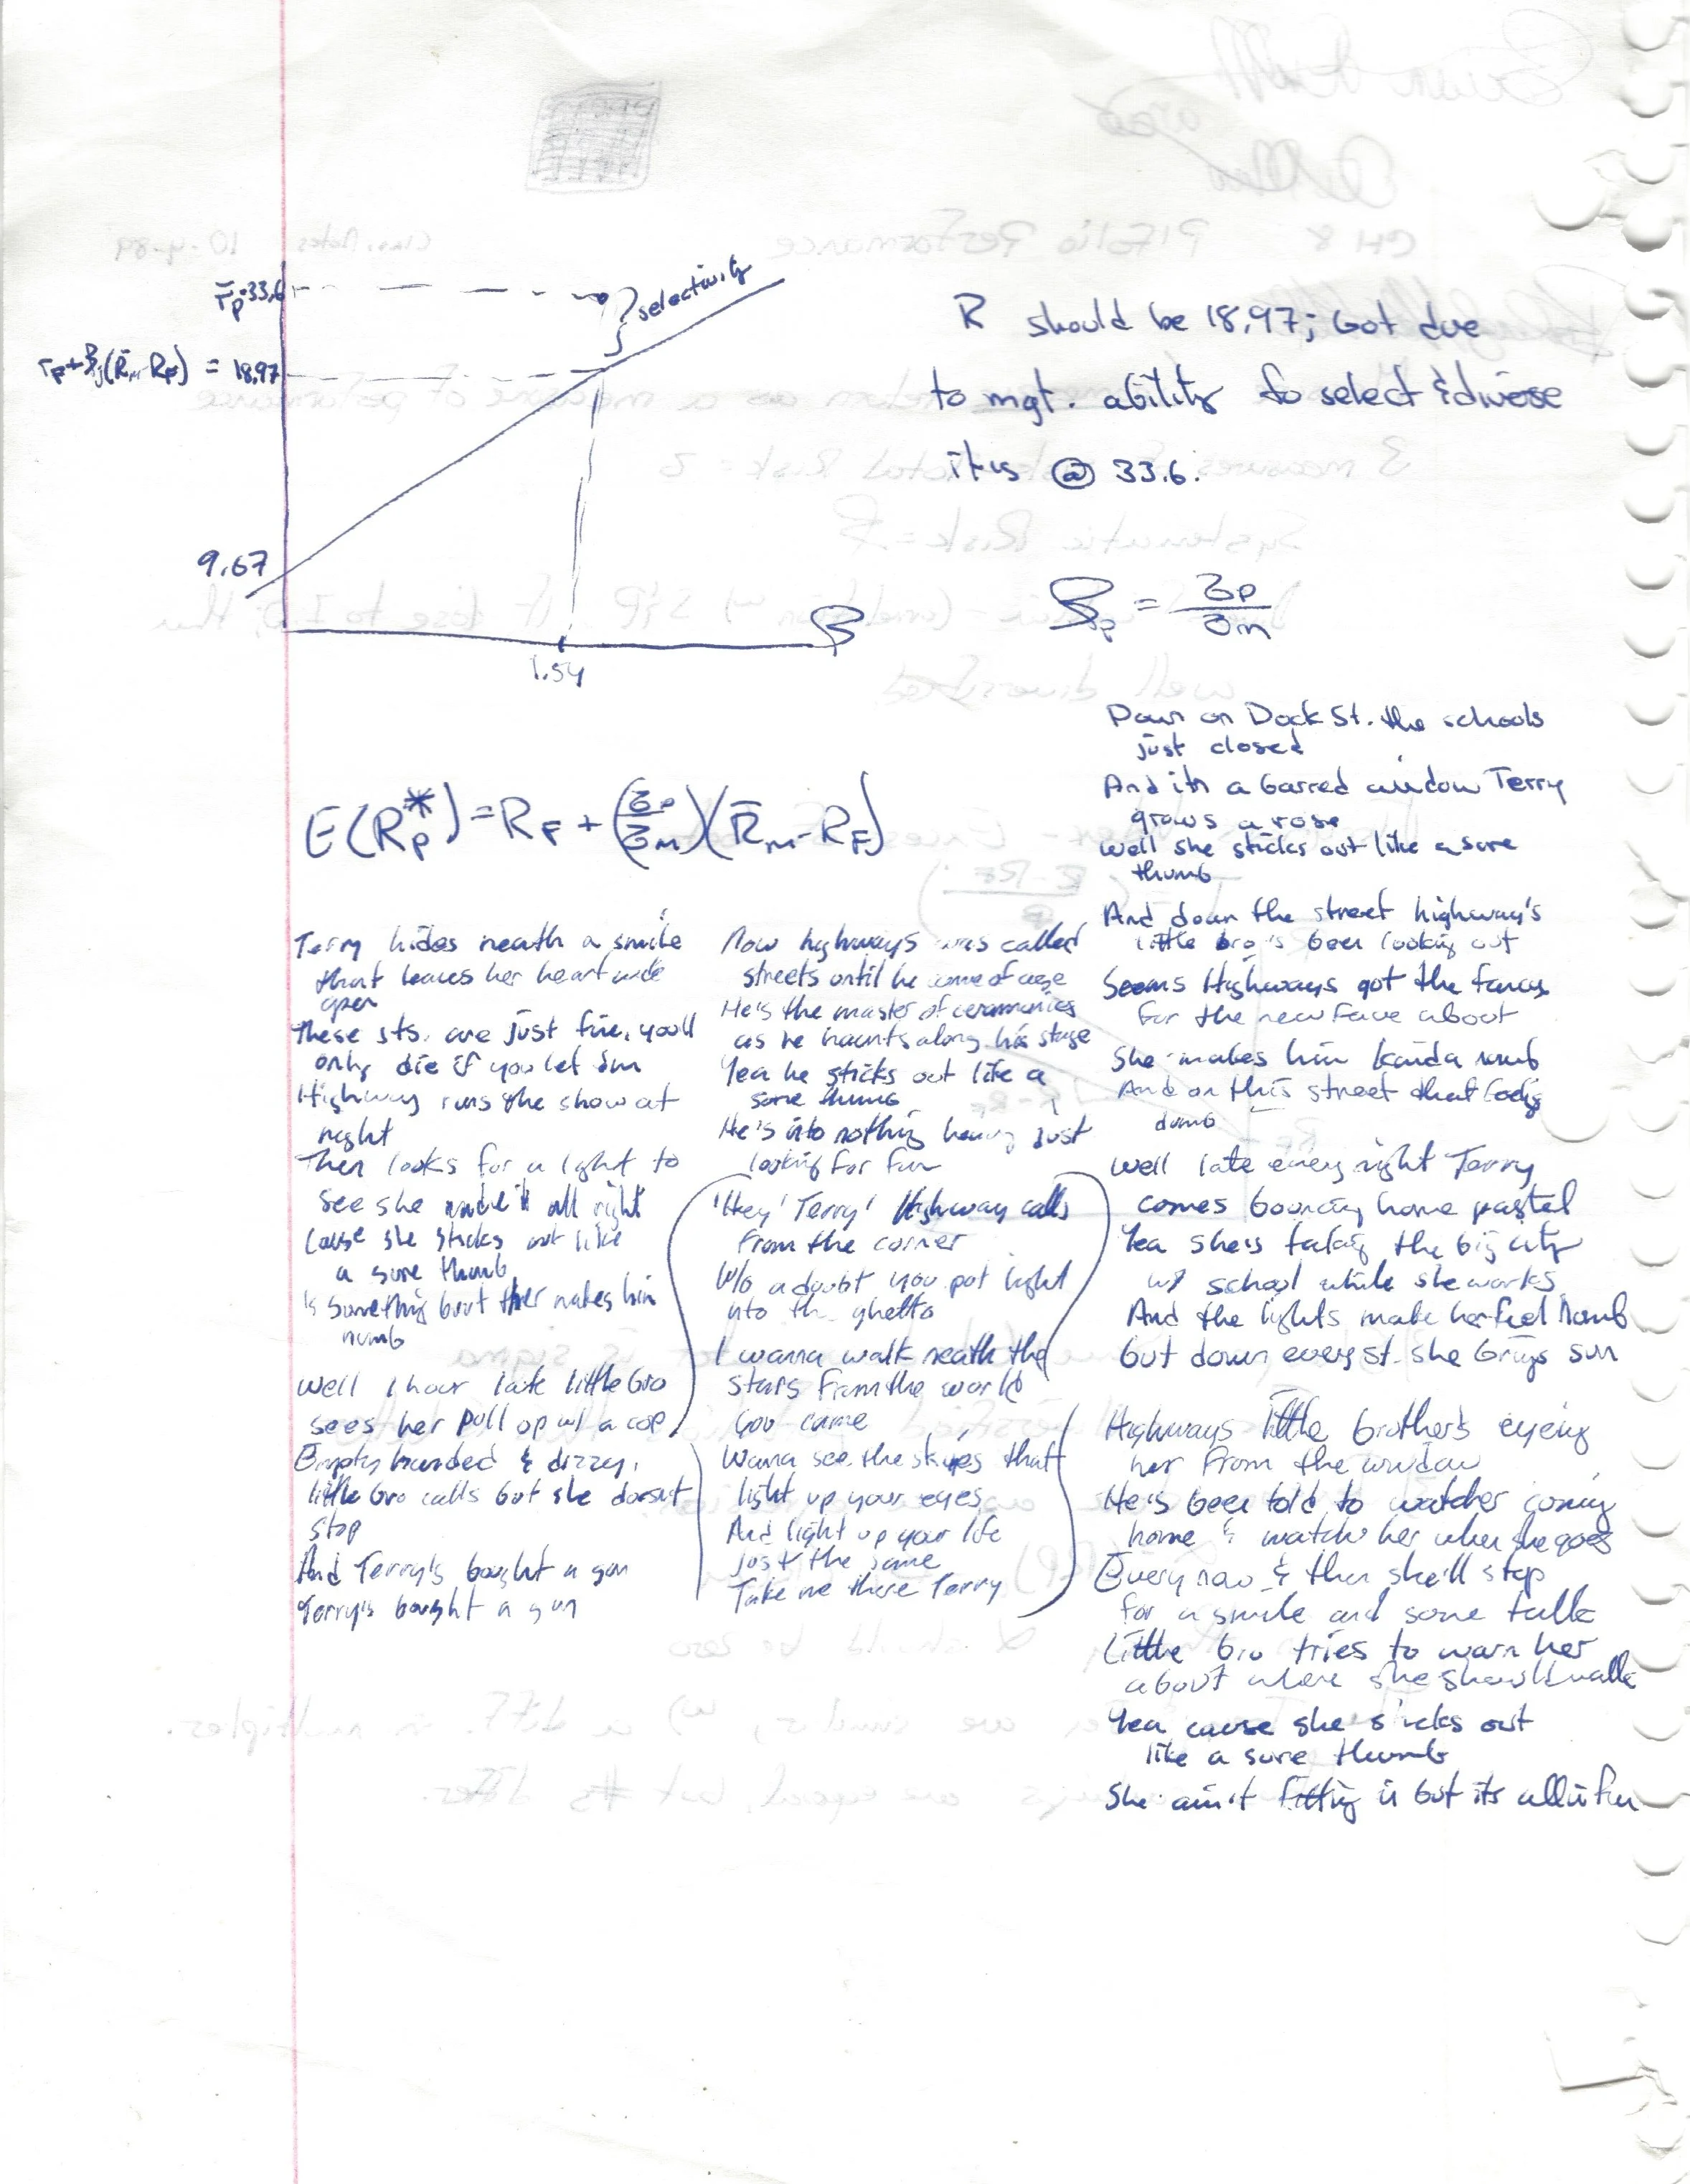 r̄p=33.6
selectivity
rF+βj(R̄m-RF) = 18.97
9.67
1.54
β
R should be 18.97; Got due
to mgt. ability to select & diverse
it is @ 33.6.
βp = σp/σm
E(Rp*) = RF + (σp/σm)(R̄m-RF)
Down on Dock St. the schools
just closed
And in a barred window Terry
grows a rose
Well she sticks out like a sore
thumb
And down the street highway's
little bro's been looking out
Seems Highways got the fancy
for the new face about
She makes him kinda numb
And on this street that bodys
dumb
Well late every night Terry
comes bouncing home pastel
Yea she's taking the big city
w/ school while she works
And the lights make her feel numb
but down every st. she brings sun
Highways little brother's eyeing
her from the window
He's been told to watch her coming
home & watch her when she goes
Every now & then she'll stop
for a smile and some talk
Little bro tries to warn her
about where she should walk
Yea cause she sticks out
like a sore thumb
She ain't fitting in but its all in fun
Now highways was called
streets until he come of age
He's the master of ceremonies
as he haunts along his stage
Yea he sticks out like a
sore thumb
He's into nothing heavy just
looking for fun
'Hey' Terry' Highway calls
from the corner
W/o a doubt you put light
into th ghetto
I wanna walk neath the
stars from the world
you came
Wanna see the skies that
light up your eyes
And light up your life
just the same
Take me there Terry
Terry hides neath a smile
that leaves her heart wide
open
These sts. are just fine, youll
only die if you let em
Highway runs the show at
night
Then looks for a light to
see she made it all right
Cause she sticks out like
a sore thumb
is something bout her makes him
numb
Well 1 hour late little bro
sees her pull up w/ a cop
Empty handed & dizzy,
little bro calls but she doesnt
stop
And Terry's bought a gun
Terry's bought a gun